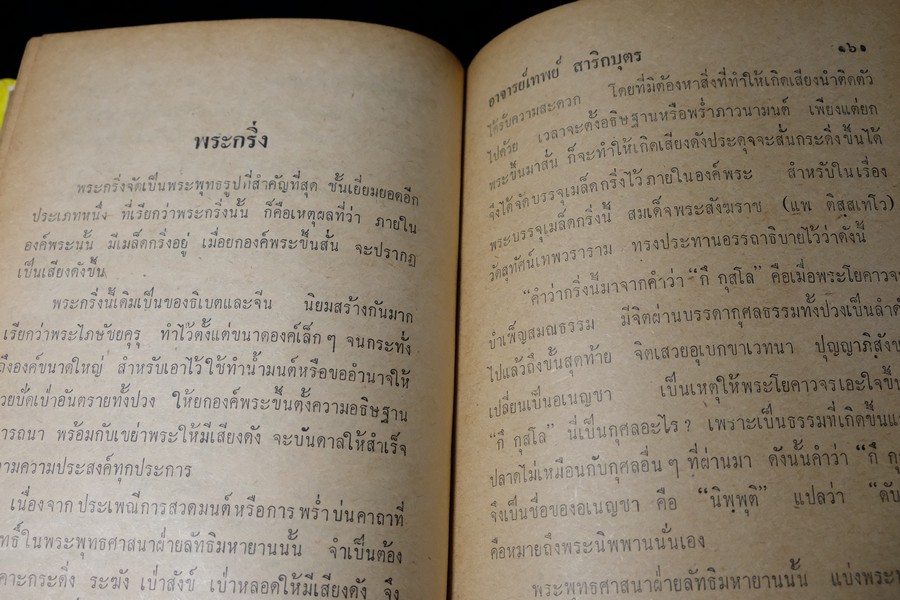 พระกริ่ง
พระกริ่งจัดเป็นพระพุทธรูปที่สำคัญที่สุด ชั้นเยี่ยมยอดอีก
ประเภทหนึ่ง ที่เรียกว่าพระกริ่งนั้น ก็คือเหตุผลที่ว่า ภายใน
องค์พระนั้น มีเม็ดกริ่งอยู่ เมื่อยกองค์พระขึ้นสั่น จะปรากฏ
เป็นเสียงดังขึ้น
พระกริ่งนี้เดิมเป็นของธิเบตและจีน นิยมสร้างกันมาก
เรียกว่าพระไภษัชยคุรุ ทำไว้ตั้งแต่ขนาดองค์เล็กๆ จนกระทั่ง
ถึงองค์ขนาดใหญ่ สำหรับเอาไว้ใช้ทำน้ำมนต์หรือขออำนาจให้
วยปัดเป่าอันตรายทั้งปวง ให้ยกองค์พระขึ้นตั้งความอธิษฐาน
ารถนา พร้อมกับเขย่าพระให้มีเสียงดัง จะบันดาลให้สำเร็จ
ามความประสงค์ทุกประการ
เนื่องจากประเพณีการสวดมนต์หรือการพร่ำบ่นคาถาที่
ทธิ์ในพระพุทธศาสนาฝ่ายลัทธิมหายานนั้น จำเป็นต้อง
คาะกระดิ่ง ระฆัง เป่าสังข์ เป่าหลอดให้มีเสียงดัง จึง
อาจารย์เทพย์ สาริกบุตร ๑๖๑
ได้รับความสะดวก โดยที่มิต้องหาสิ่งที่ทำให้เกิดเสียงนำติดตัว
ไปด้วย เวลาจะตั้งอธิษฐานหรือพร่ำภาวนามนต์ เพียงแต่ยก
พระขึ้นมาสั่น ก็จะทำให้เกิดเสียงดังประดุจจะสั่นกระดิ่งขึ้นได้
จึงได้จัดบรรจุเม็ดกริ่งไว้ภายในองค์พระ สำหรับในเรื่อง
พระบรรจุเม็ดกริ่งนี้ สมเด็จพระสังฆราช (แพ ติสฺสเทโว)
วัดสุทัศน์เทพวราราม ทรงประทานอรรถาธิบายไว้ว่าดังนี้
“คำว่ากริ่งนี้มาจากคำว่า “กึ กุสโล” คือเมื่อพระโยคาวจ
บำเพ็ญสมณธรรม มีจิตผ่านบรรดากุศลธรรมทั้งปวงเป็นลำดั
ไปแล้วถึงขั้นสุดท้าย จิตเสวยอุเบกขาเวทนา ปุญญาภิสังข
เปลี่ยนเป็นอเนญชา เป็นเหตุให้พระโยคาวจรเอะใจขึ้น
“กึ กุสโล” นี่เป็นกุศลอะไร? เพราะเป็นธรรมที่เกิดขึ้นแ
ปลาดไม่เหมือนกับกุศลอื่นๆ ที่ผ่านมา ดังนั้นคำว่า “กึ กุ
จึงเป็นชื่อของอเนญชา คือ “นิพพุติ” แปลว่า “ดับ
คือหมายถึงพระนิพพานนั่นเอง
พระพุทธศาสนาฝ่ายลัทธิมหายานนั้น แบ่งพระพ